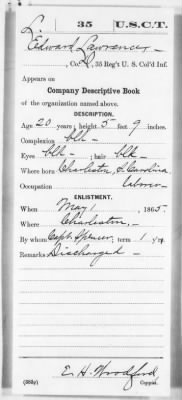 L. 35 U.S.C.T.
Edward Lawrence
, Co. , 35 Reg't U. S. Col'd Inf.
Appears on
Company Descriptive Book
of the organization named above.
DESCRIPTION.
Age 20 years; height 5 feet 9 inches.
Complexion blk
Eyes blk ; hair blk
Where born Charleston, S. Carolina
Occupation laborer
ENLISTMENT.
When May 1, 1865.
Where Charleston,
By whom Capt. Spencer, term 1 y'rs.
Remarks Discharged
E. H. Woodford
(383g) Copyist.